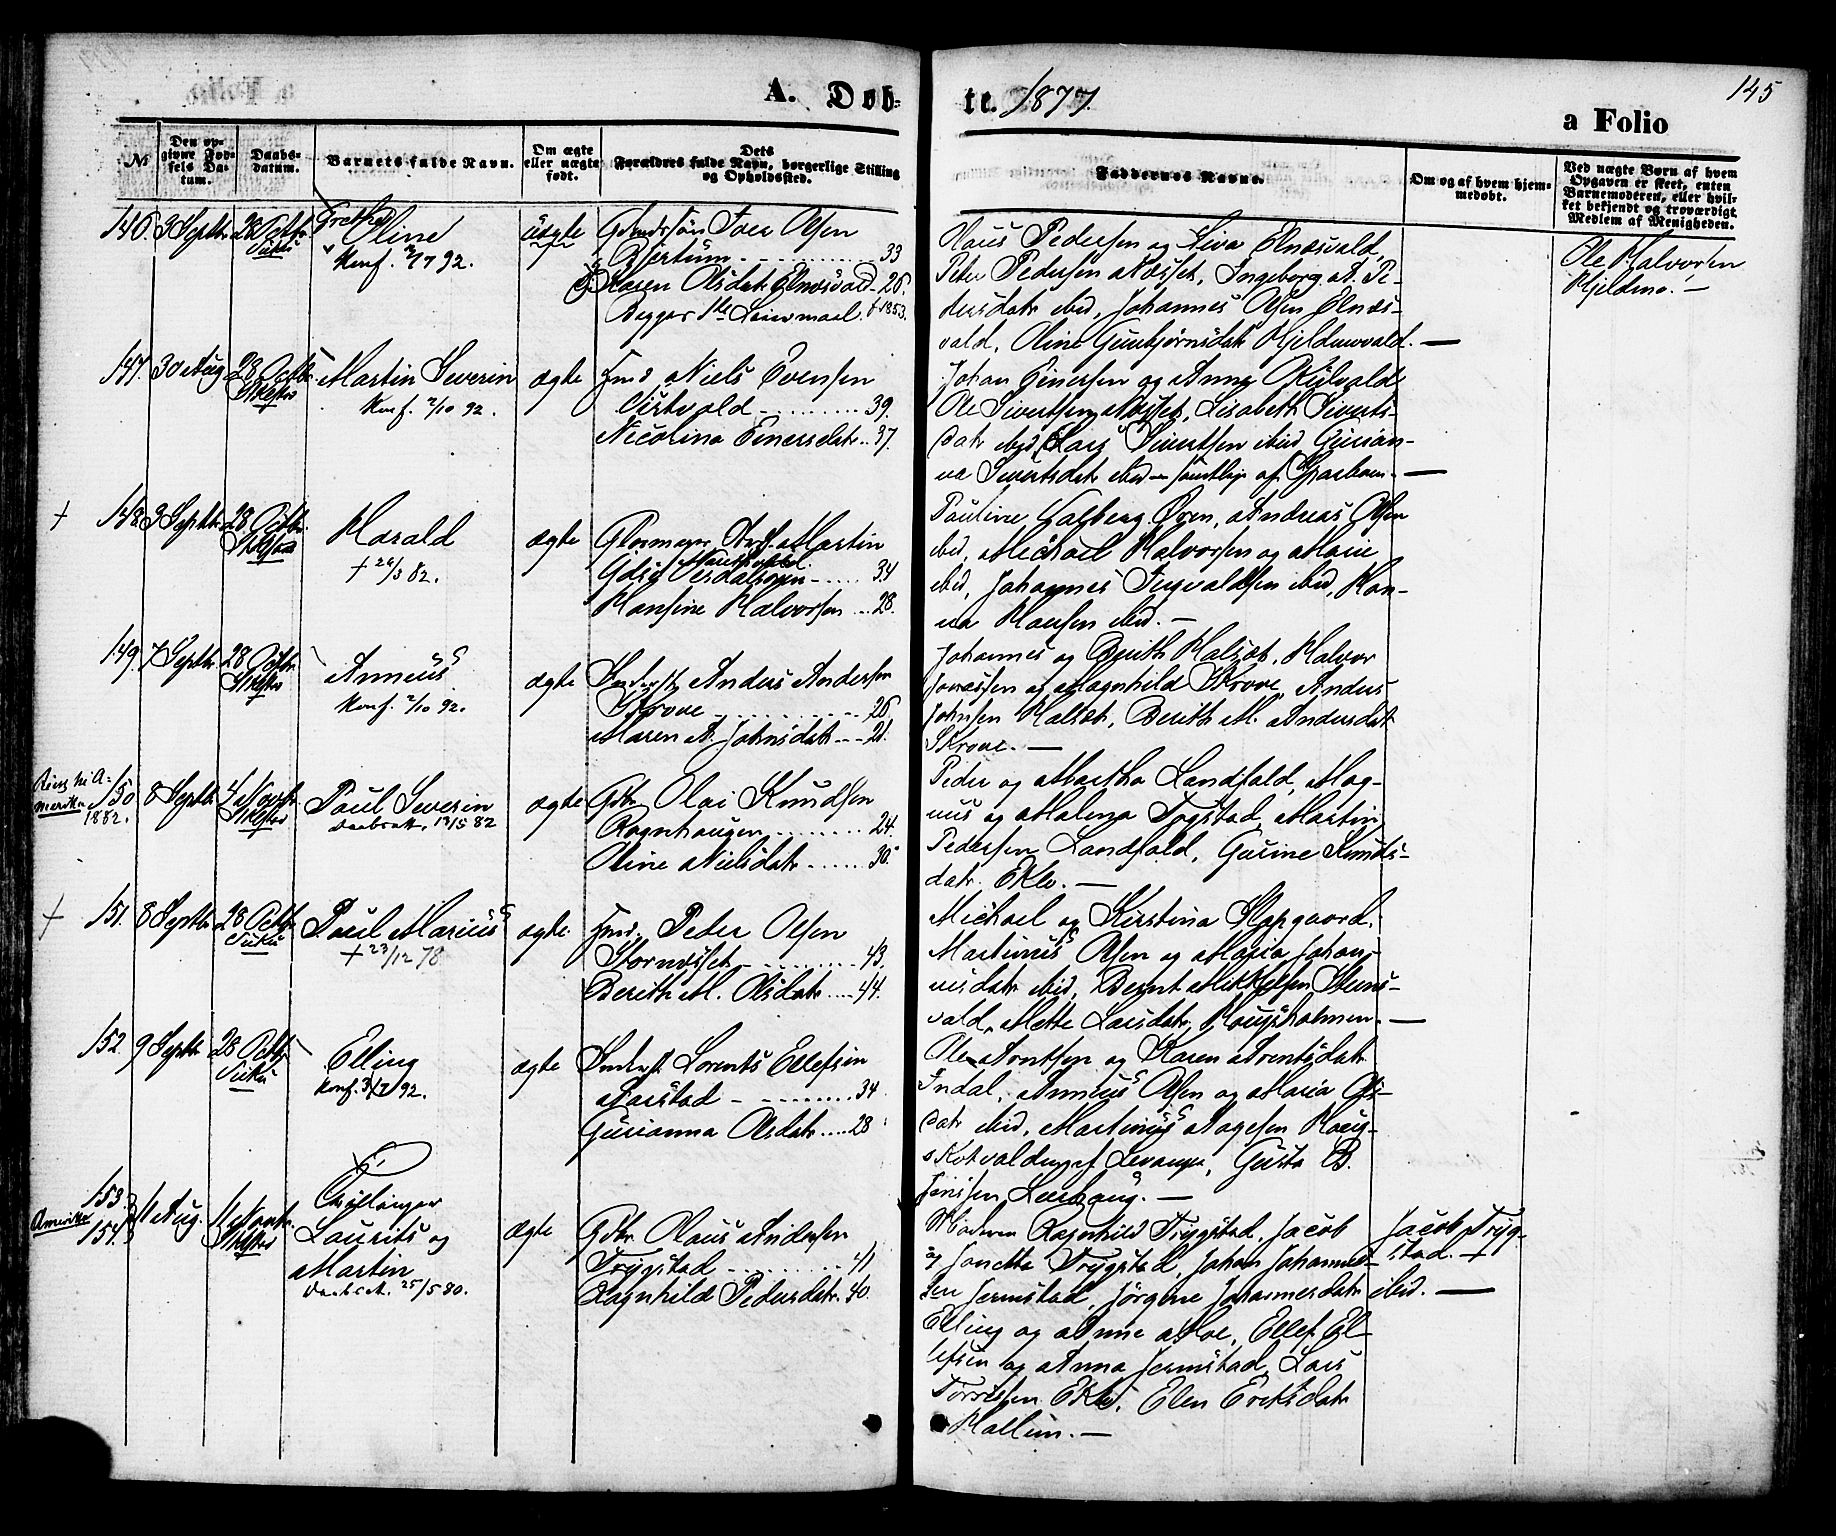 145
A. Døb-
te. 1877.
a Folio
№
Den op-
givne Fød-
sels Da-
tum.
Daabs-
datum.
Barnets fulde Navn.
Om ægte
eller uægte
født.
Dets
Forældres fulde Navn, borgerlige Stilling
og Opholdssted.
Faddernes Navne.
Om og af hvem hjem-
medøbt.
Ved uægte Børn af hvem
Opgaven er skeet, enten
Barnemoderen, eller hvil-
ket bekjendt og troværdigt
Medlem af Menigheden.
146. 3 Septbr 28 Octbr
Vuku
Grethe
Oline
Konf. 92.
uægte
Gdmdssøn Iver Olsen
Bjertum 33
Karen Olsdatr Elnæsvald 26.
Begges 1ste Leiermaal. f. 1853.
Claus Pedersen og Liva Elnæsvald,
Peter Pedersen Næsset, Ingeborg A. Pe-
dersdatr ibid, Johannes Olsen Elnæs-
vald, Oline Gunbjørnsdatr Hjeldmovald. —
Ole Halvorsen
Hjeldmo. —
147. 30 Aug. 28 Octbr
Stklestad
Martin Severin
Konf. 2/10 92.
ægte
Hmd Niels Evensen
Vistvold 39.
Nicolina Einersdatr 37.
Johan Einersen og Anna
Ole Sivertsen Næsset, Lisabeth Siverts-
datr ibid, Lars Sivertsen ibid Gurian-
na Sivertsdatr ibid —
+ 148. 3 Septbr 28 Octbr.
Stklestad
Harald
+ 26/3 82.
ægte
Martin
Verdalsøren 34
Hansine Halvorsen 28.
Pauline Valberg Øren, Andreas Olsen
ibid, Michael Halvorsen og Marie
ibid, Johannes Ingvaldsen ibid, Han-
na Hansen ibid. —
149. 7 Septbr 28 Octbr
Stklestad
Anneus
Konf. 2/10 92.
ægte
Anders Andersen
Skrove 26.
Maren A. Johnsdatr 21.
Johannes og Berith Halset, Halvor
Jonassen og Magnhild Skrove, Anders
Johnsen Halset, Berith M. Andersdatr
Skrove. —
Reist til A-
merika
1882.
150 8 Septbr 4 Novbr
Stklestad
Paul Severin
Daabsatt. 13/5 82
ægte
Gdbr Olai Knudsen
Rognhaugen 24.
Oline Nielsdatr 30.
Peder og Martha Landfald, Mag-
nus og Malena Tygstad, Martin
Pedersen Landfald, Gusine Knuds-
datr Eklo. —
+ 151. 8 Septbr 28 Octbr
Vuku
Paul Marius
+ 23/12 78
ægte
Hmd. Peder Olsen
Stornæsset 43.
Berith M. Olsdatr 44.
Michael og Kirstina Stapgaard,
Martinus Olsen og Maria Johan-
nesdatr ibid, Bernt Mikkelsen
vald, Mette Larsdatr Haugsholmen. —
152 9 Septbr 28 Octbr
Vuku
Elling
Konf. 92.
ægte
Inderst Lorents Ellefsen
Garstad 34
Gurianna Olsdatr 28
Ole Arntsen og Karen Arentsdatr
Indal, Anneus Olsen og Maria Ols-
datr ibid, Martinus Aagesen Haug-
skotvald af Levanger, Gusta B.
Jensen Leirhaug. —
Amerika
153
154. 1 Aug. 4 Novbr.
Stklestad
Tvillinger
Laurits og
Martin
Daabsat. 25/5 80.
ægte
Gdbr Olaus Andersen
Trygstad 41
Ragnhild Pedersdatr. 40.
Moderen Ragnhild Trygstad, Jacob
og Jonetta Trygstad, Johan Johannes-
sen Jermstad, Jørgine Johannesdatr ibid. —
Elling og Anne Moe, Ellef El-
lefsen og Anna Jermstad, Lars
Torresen Eklo, Elen Eriksdatr
Hallem. —
Jacob Tryg-
stad. +